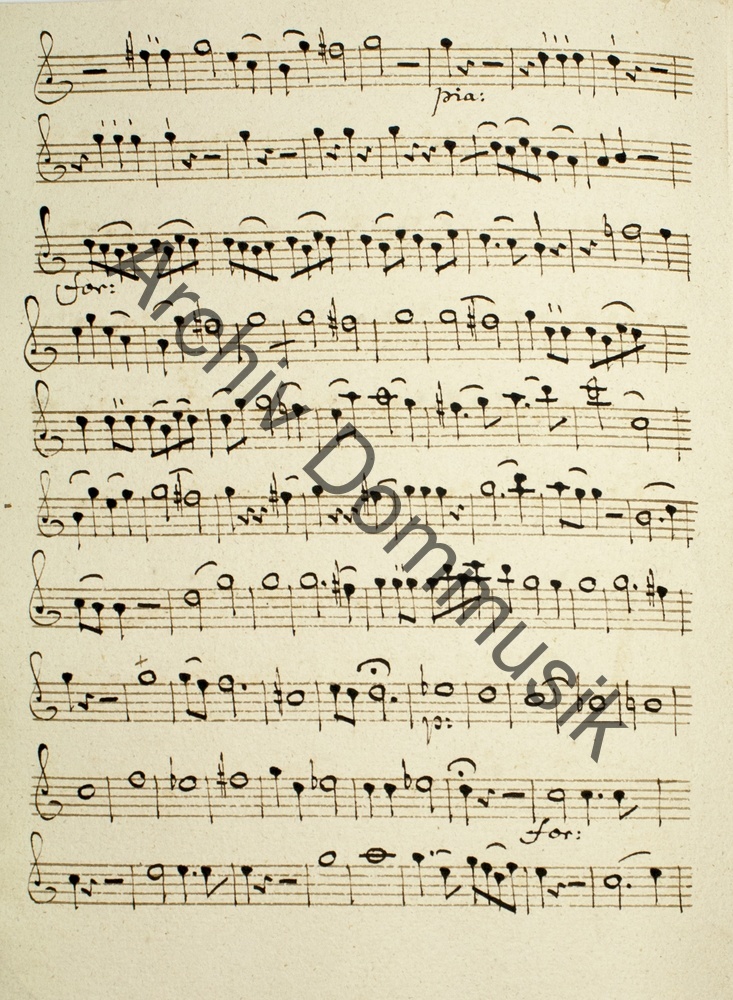 pia:
for:
Archiv Dommusik
p:
for: